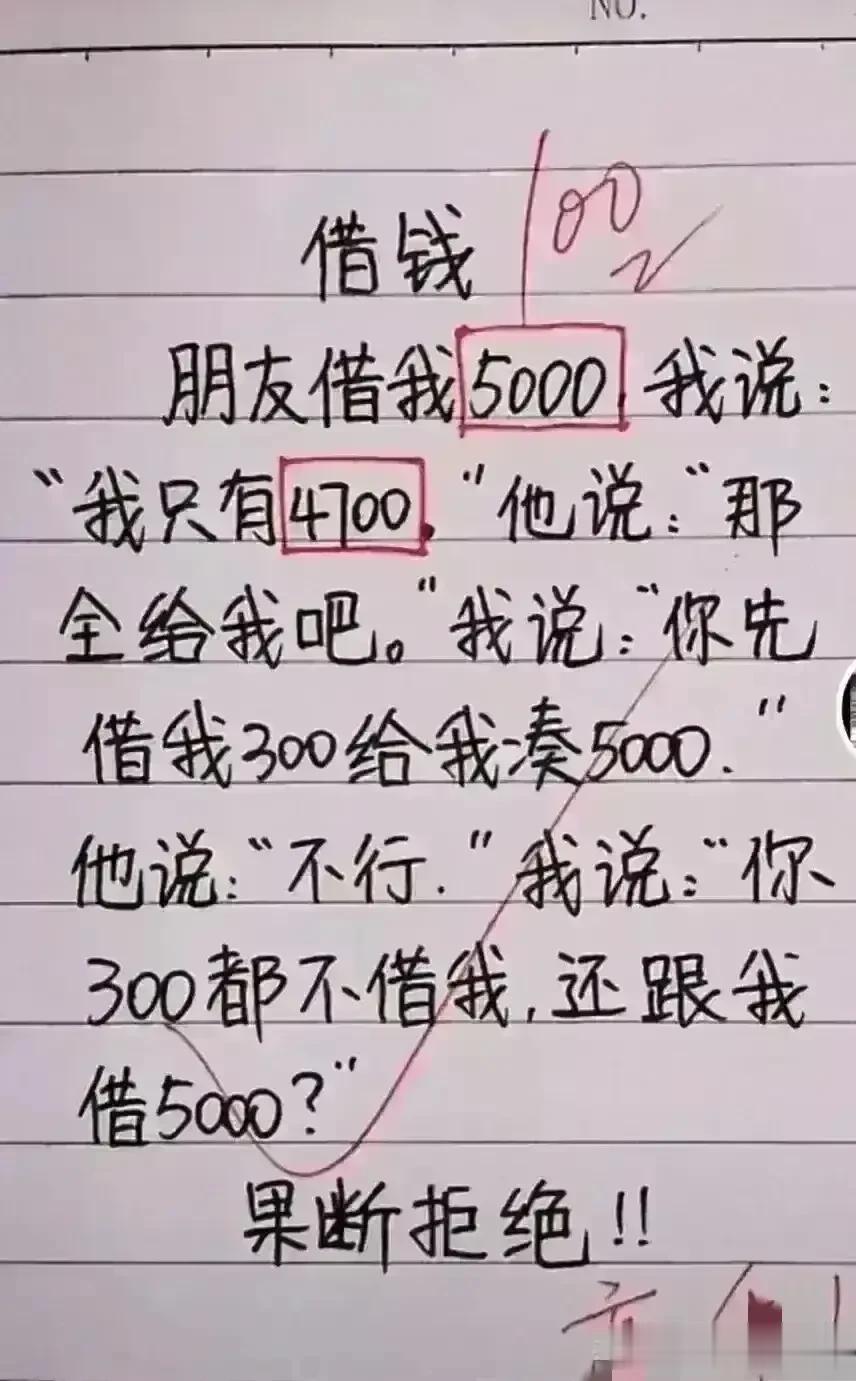 NO.
借钱 100
朋友借我5000,我说:
“我只有4700.”他说:“那
全给我吧。”我说:“你先
借我300给我凑5000.”
他说:“不行.”我说:“你
300都不借我,还跟我
借5000?”
果断拒绝!!